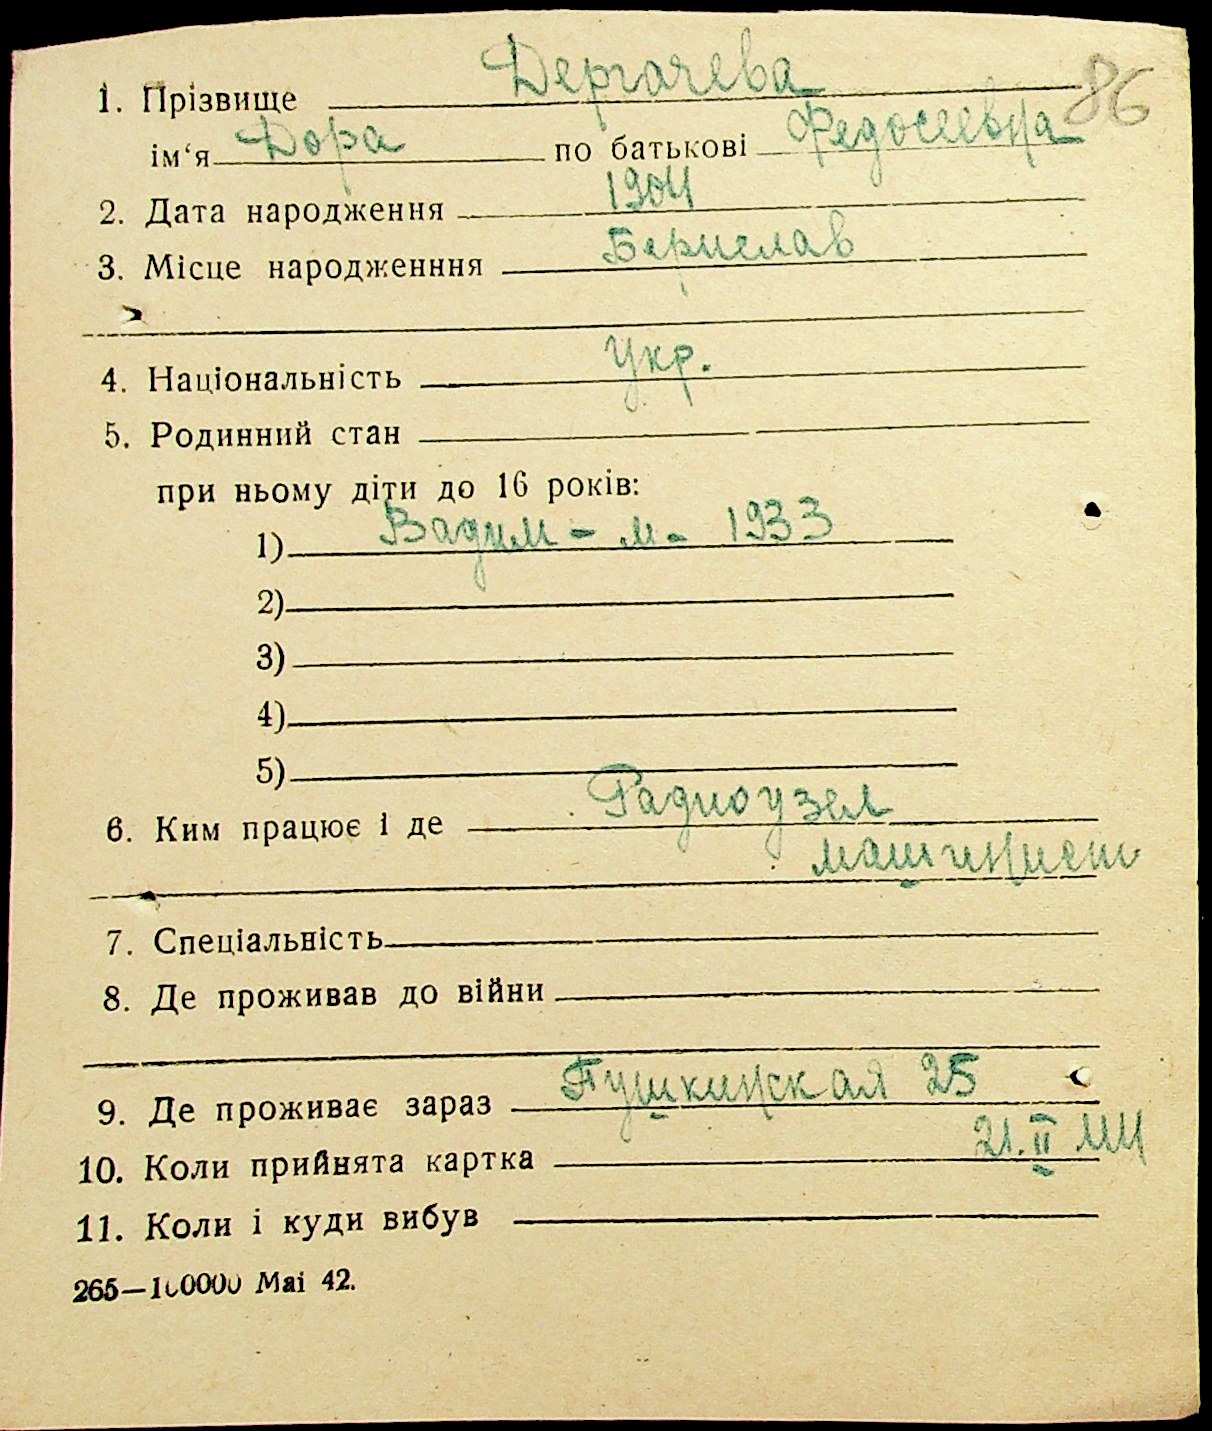 86
1. Прізвище Дергачева
ім‘я Дора по батькові Федосеевна
2. Дата народження 1904
3. Місце народженння Берислав
4. Національність Укр.
5. Родинний стан
при ньому діти до 16 років:
1) Вадим - м - 1933
2)
3)
4)
5)
6. Ким працює і де Радиоузел
машинист
7. Спеціальність
8. Де проживав до війни
9. Де проживає зараз Пушкинская 25
10. Коли прийнята картка 21.II 44
11. Коли і куди вибув
265—100000 Mai 42.